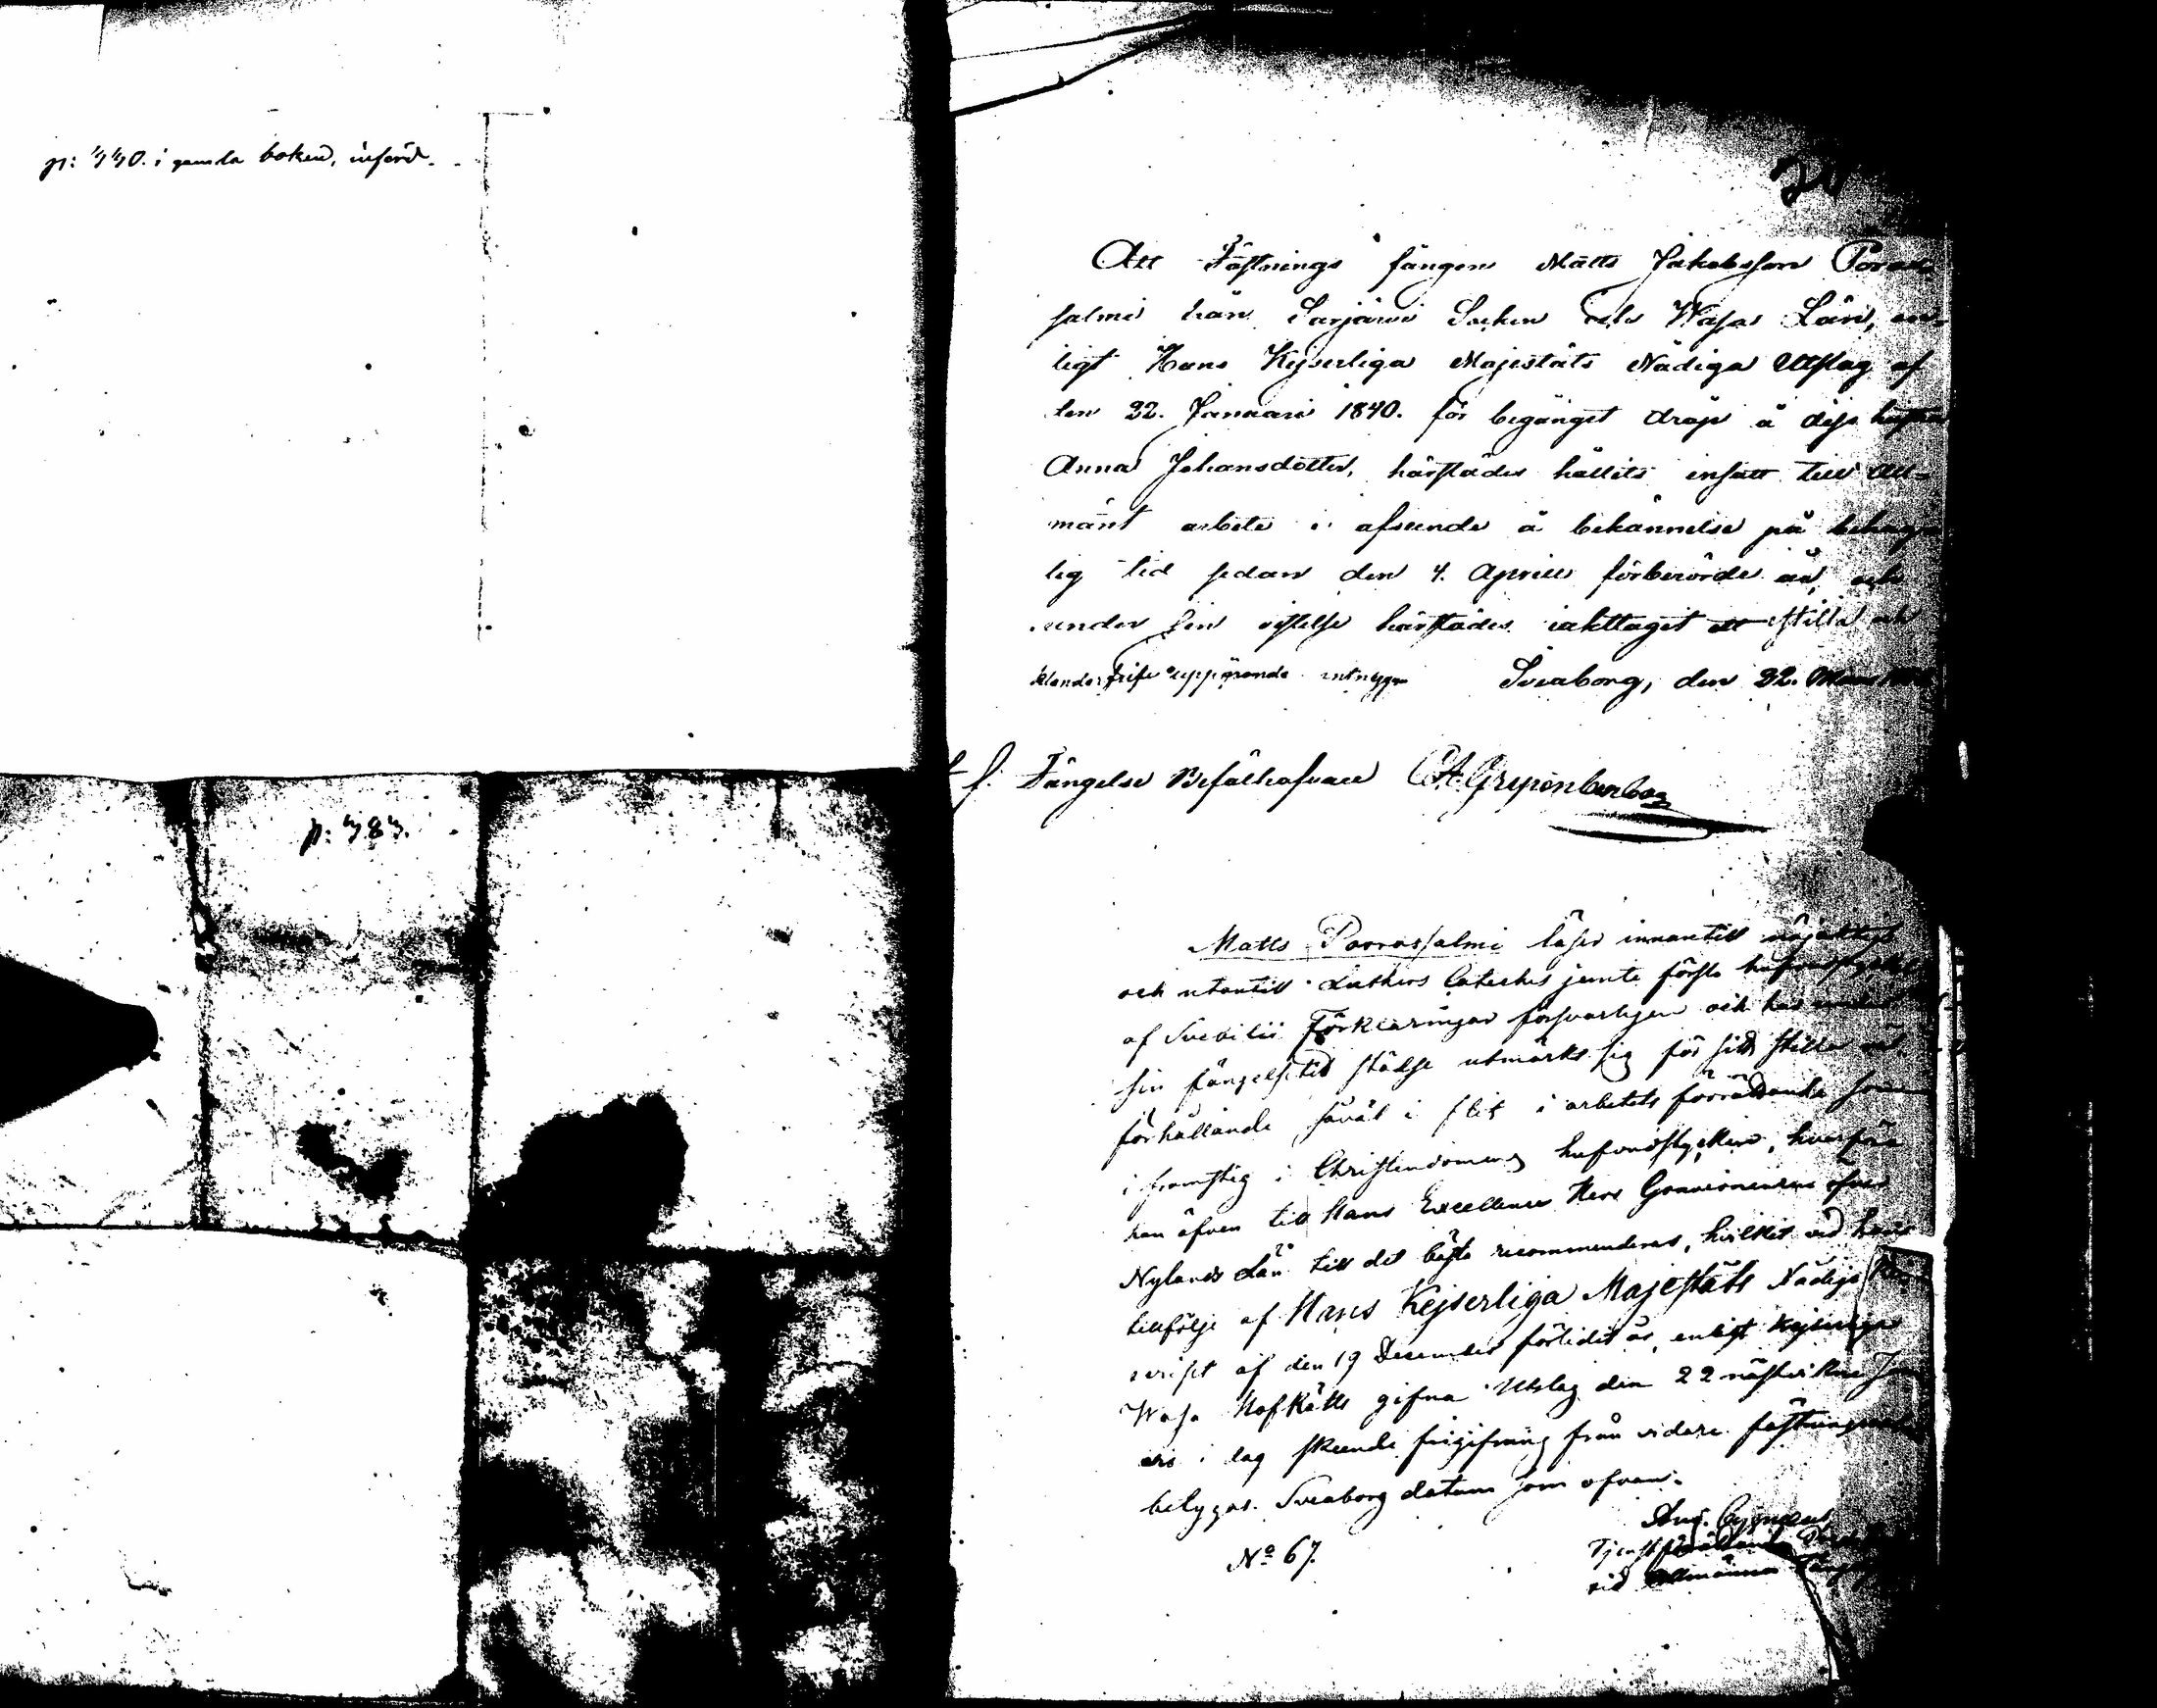 p: 440. i gamla boken, införd.
p: 383.
24
Att Fästnings fången Matts Jakobsson Poras
salmi från Sarjärvi Socken och Wasa Län, en-
ligt Hans Kejserliga Majestäts Nådiga Utslag af
den 22. Januari 1840. för begånget dråp å dess hustru
Anna Johansdotter, härstädes hållits insatt till all-
mänt arbete i afseende å bekännelse på behag-
lig tid sedan den 4. Aprill förberörde år, och
under sin vistelse härstädes iakttagit ett stilla och
klanderfritt uppförande intygar Sveaborg, den 22. Mars
t. f. Fängelse Befälhafvare C.A. Gripenberg
Matts Poorassalmi läser innantill nöjaktigt
och utantill Luthers Cateches jemte första hufvudstycket
af Svebilii Förklaringar försvarligen och har under
sin fängelsetid städse utmärkt sig för sitt stilla
förhållande såväl i flit i arbetets förrättande som
i framsteg i Christendomens hufvudstycken, hvarföre
han äfven till Hans Excellence Herr Gouverneuren öfver
Nylands Län till det bästa recommenderas, hvilket vid hans
tillfölje af Hans Kejserliga Majestäts Nådiga
script af den 19 December förlidet år, enligt Kejserliga
Wasa HofRätts gifna Utslag den 22 nästvikne
ari i dag skeende frigifning från vidare fästnings
betygas. Sveaborg datum som ofvan.
Aug. Cygnæus
Tjenstförrättande
vid Allmänna
No 67.